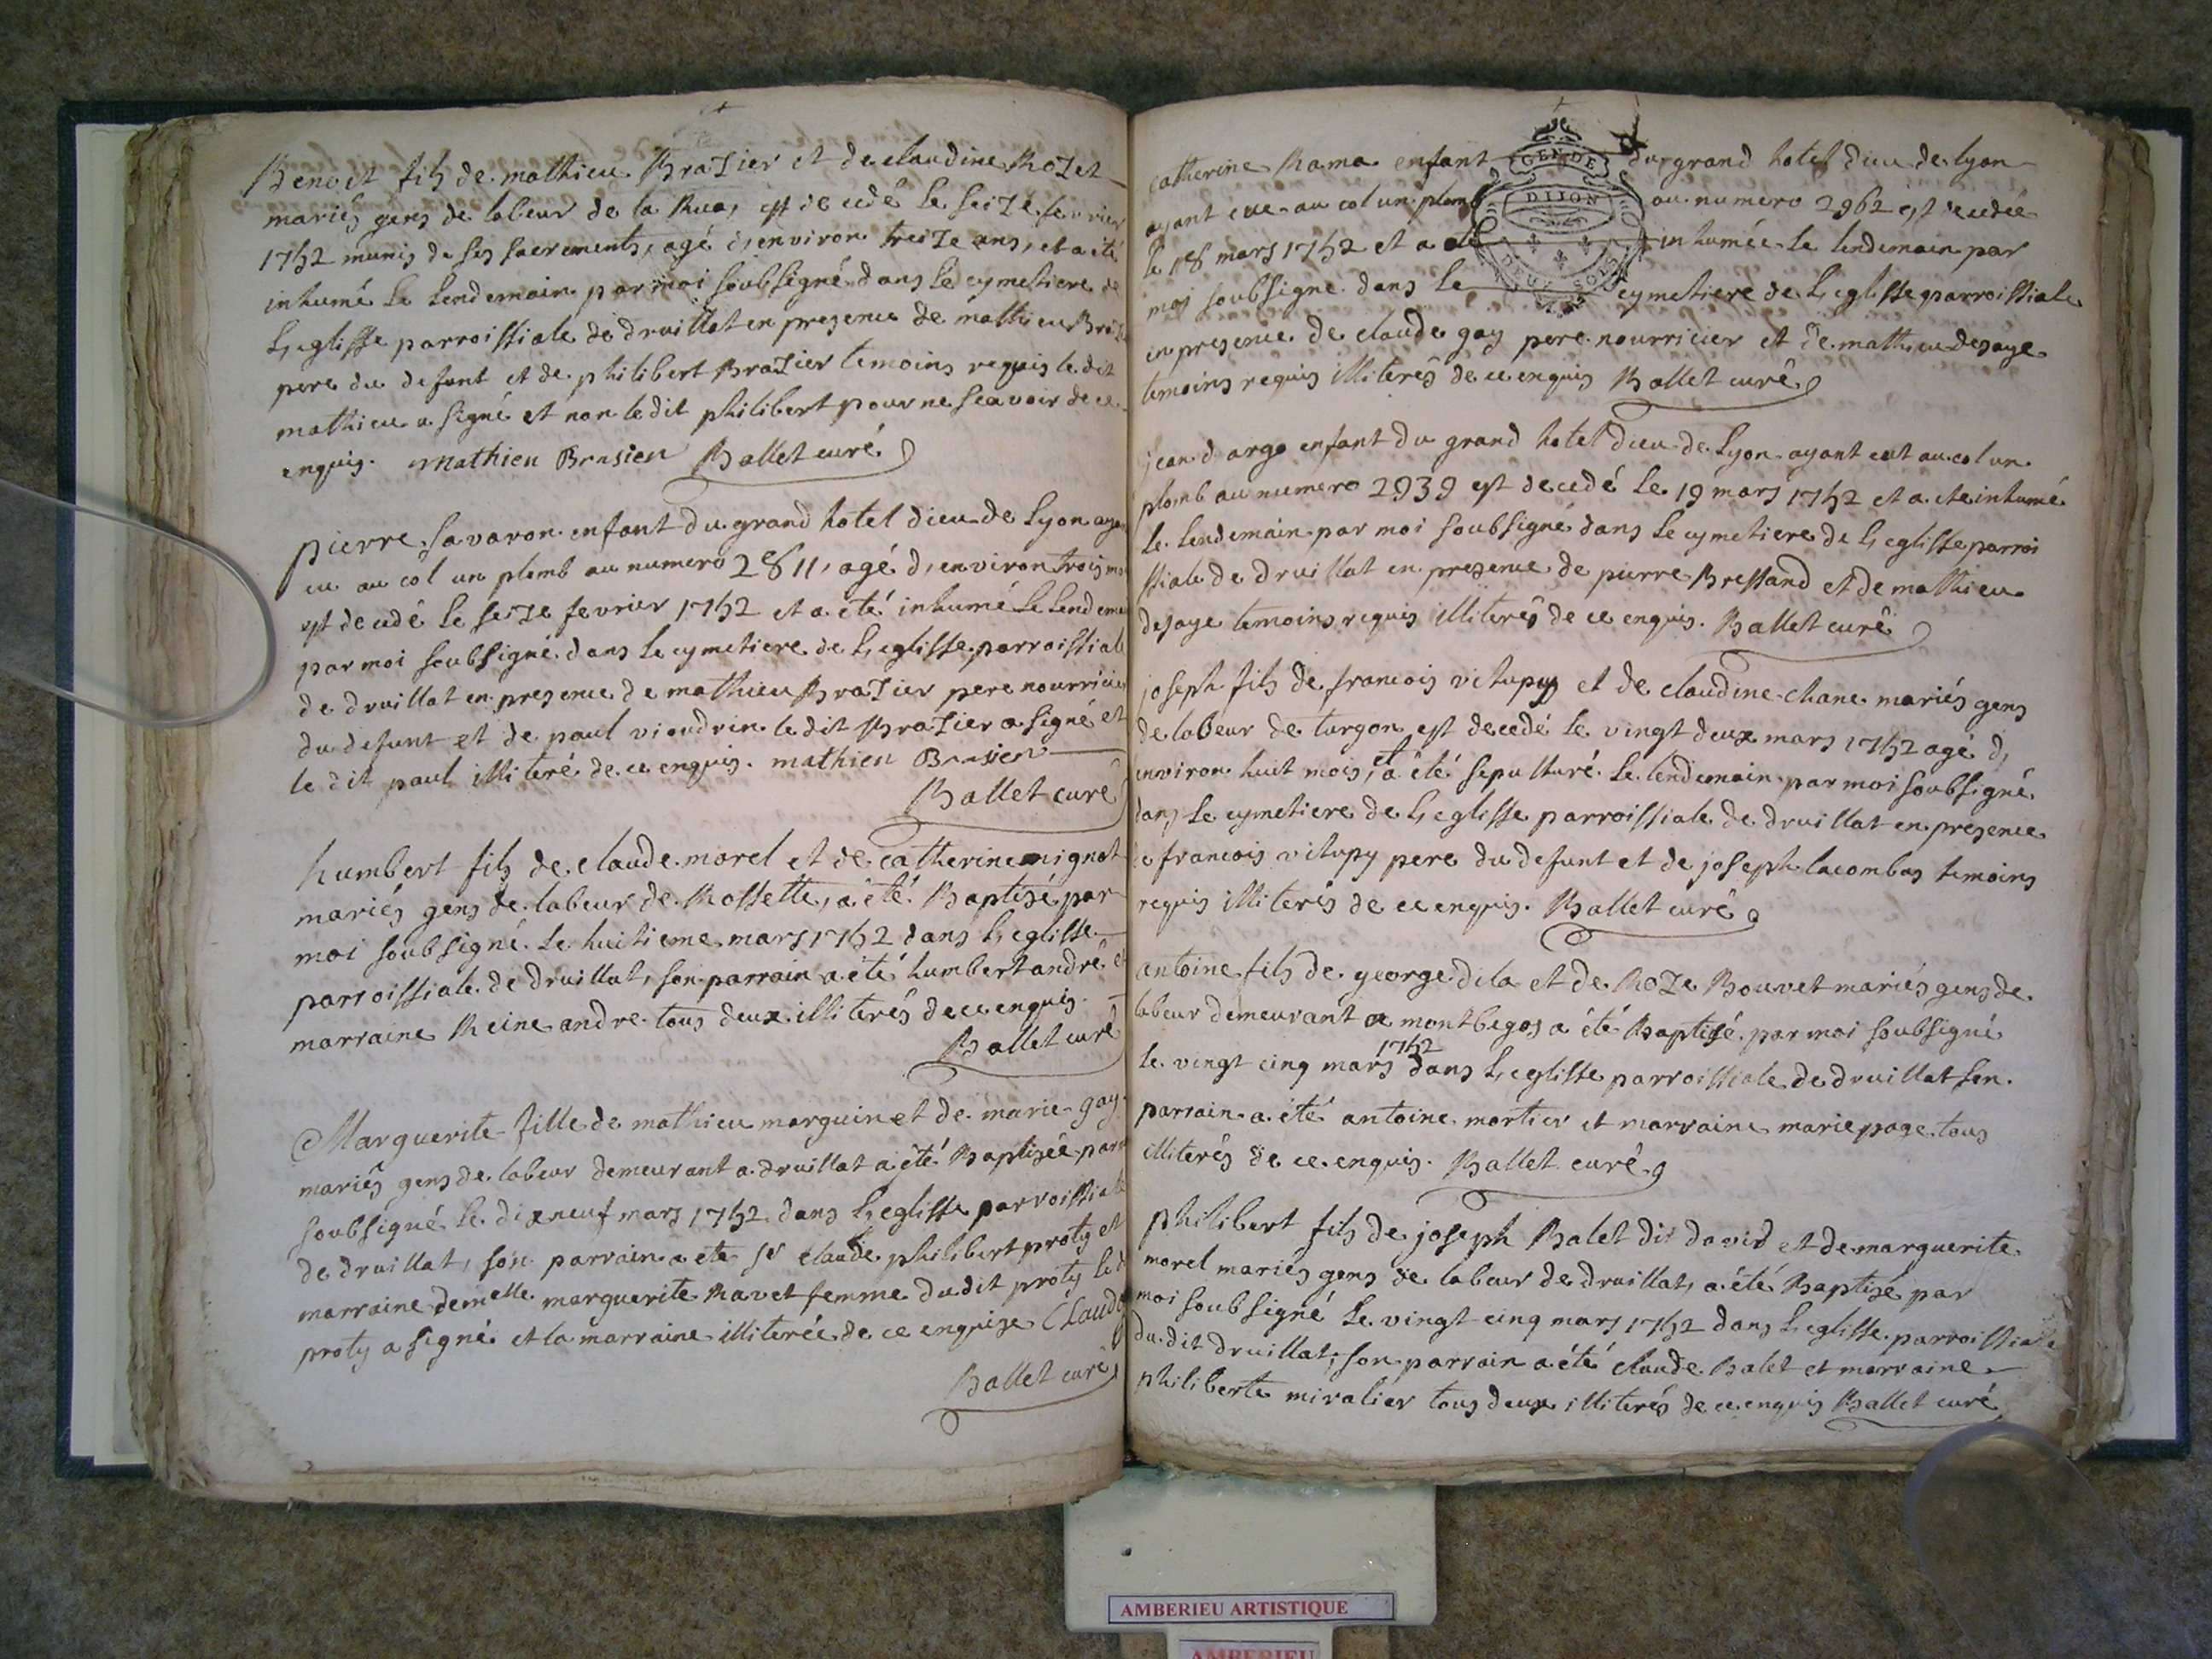 Benoit fils de mathieu Brazier et de claudine Rozet
mariés gens de labeur de la Rua, est decedé le seize fevrier
1752 munis de ses sacrements, agé d'environ treize ans, et a été
inhumé le lendemain par moi soubsigné dans le cymetiere de
l'eglisse parroissiale de druillat en presence de mathieu
pere du defunt et de philibert Brazier temoins requis le dit
mathieu a signé et non le dit philibert pour ne scavoir de ce
enquis. mathieu Brasier Ballet curé
pierre savaron enfant du grand hotel dieu de Lyon
eu au col un plomb au numero 2811, agé d'environ trois
est decedé le seize fevrier 1752 et a été inhumé le
par moi soubsigné dans le cymetiere de l'eglisse parroissiale
de druillat en presence de mathieu Brazier pere nourricier
du defunt et de paul vieudrin le dit Brazier a signé et
le dit paul illiteré de ce enquis. mathieu Brasier
Ballet curé
humbert fils de claude morel et de catherine mignot
mariés gens de labeur de Rossette, a été Baptisé par
moi soubsigné le huitieme mars 1752 dans l'eglisse
parroissiale de druillat, son parrain a été humbert andré et
marraine Reine andre tous deux illiterés de ce enquis.
Ballet curé
Marguerite fille de mathieu marguin et de marie gay
mariés gens de labeur demeurant a druillat a été Baptisée par
soubsigné le dixneuf mars 1752 dans l'eglisse parroissiale
de druillat, son parrain a ete sr claude philibert proty et
marraine demelle marguerite Ravet femme du dit proty le d
proty a signé et la marraine illiterée de ce enquise Claude
Ballet curé
GEN DE
DIJON
DEUX SOLS
catherine Rama enfant du grand hotel dieu de lyon
ayant eue au col un plomb au numero 2962 est decedée
le 18 mars 1752 et a été inhumée le lendemain par
moi soubsigné dans le cymetiere de l'eglisse parroissiale
en presence de claude gay pere nourricier et de mathieu desaye
temoins requis illiterés de ce enquis Ballet curé
jean d'argo enfant du grand hotel dieu de Lyon ayant eut au col un
plomb au numero 2939 est decedé le 19 mars 1752 et a ete inhumé
le lendemain par moi soubsigné dans le cymetiere de l'eglisse parroi
ssiale de druillat en presence de pierre Bressand et de mathieu
desaye temoins requis illiterés de ce enquis. Ballet curé
joseph fils de francois vitupy et de claudine chane mariés gens
de labeur de turgon est decedé le vingt deux mars 1752 agé d'
environ huit mois, et a été sepulturé le lendemain par moi soubsigné
dans le cymetiere de l'eglisse parroissiale de druillat en presence
de francois vitupy pere du defunt et de joseph lacombas temoins
requis illiterés de ce enquis. Ballet curé
antoine fils de george dila et de Roze Bouvet mariés gens de
labeur demeurant a montbegos a été Baptisé par moi soubsigné
le vingt cinq mars 1752 dans l'eglisse parroissiale de druillat son
parrain a été antoine mortier et marraine marie page tous
illiterés de ce enquis. Ballet curé
philibert fils de joseph Balet dit david et de marguerite
morel mariés gens de labeur de druillat, a été Baptisé par
moi soubsigné le vingt cinq mars 1752 dans l'eglisse parroissiale
du dit druillat, son parrain a été claude Balet et marraine
philiberte miralier tous deux illiterés de ce enquis Ballet curé
AMBERIEU ARTISTIQUE
AMBERIEU